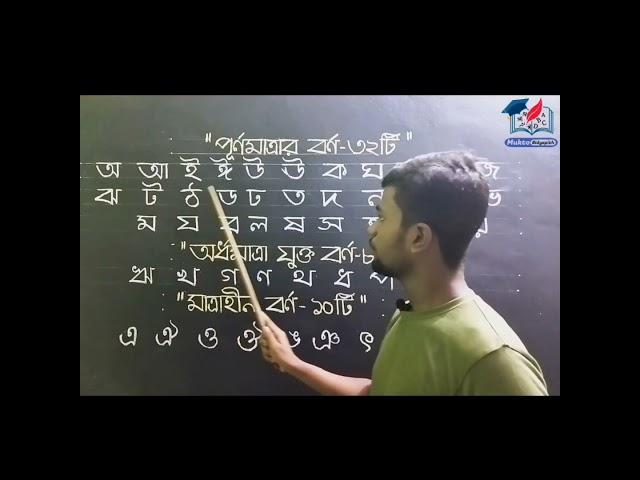 "পূর্ণমাত্রার বর্ণ-৩২টি"
অ আ ই ঈ উ ঊ ক ঘ জ
ঝ ট ঠ ড ঢ ত দ ন ভ
ম য র ল ষ স
"অর্ধমাত্রা যুক্ত বর্ণ-৮
ঋ খ গ ণ থ ধ প
"মাত্রাহীন বর্ণ- ১০টি"
এ ঐ ও ঔ ঙ ঞ ৎ
Mukto Bidyapith